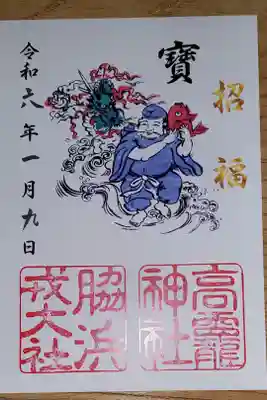 招福
寶
令和六年一月九日
高靇神社
脇浜戎大社